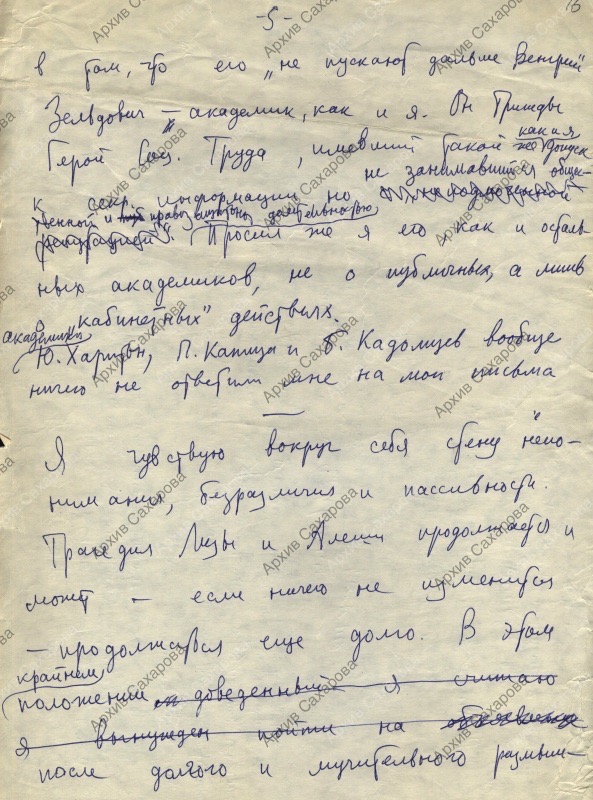 -5-
16
в том, что его „не пускают дальше Венгрии"
Зельдович — академик, как и я. Он Трижды
Герой Соц. Труда, имевший такой же как и я допуск
к секр. информации, но не занимавшийся общес-
твенной и правозащитной деятельностью
Просил же я его как и осталь-
ных академиков, не о публичных, а лишь
о „кабинетных" действиях.
академики
Ю. Харитон, П. Капица и Б. Кадомцев вообще
ничего не ответили мне на мои письма
—
Я чувствую вокруг себя стену непо-
нимания, безразличия и пассивности.
Трагедия Лизы и Алеши продолжается и
может — если ничего не изменится
— продолжаться еще долго. В этом
крайнем
положении доведенный я считаю
я вынужден пойти на
после долгого и мучительного размыш-
Архив Сахарова